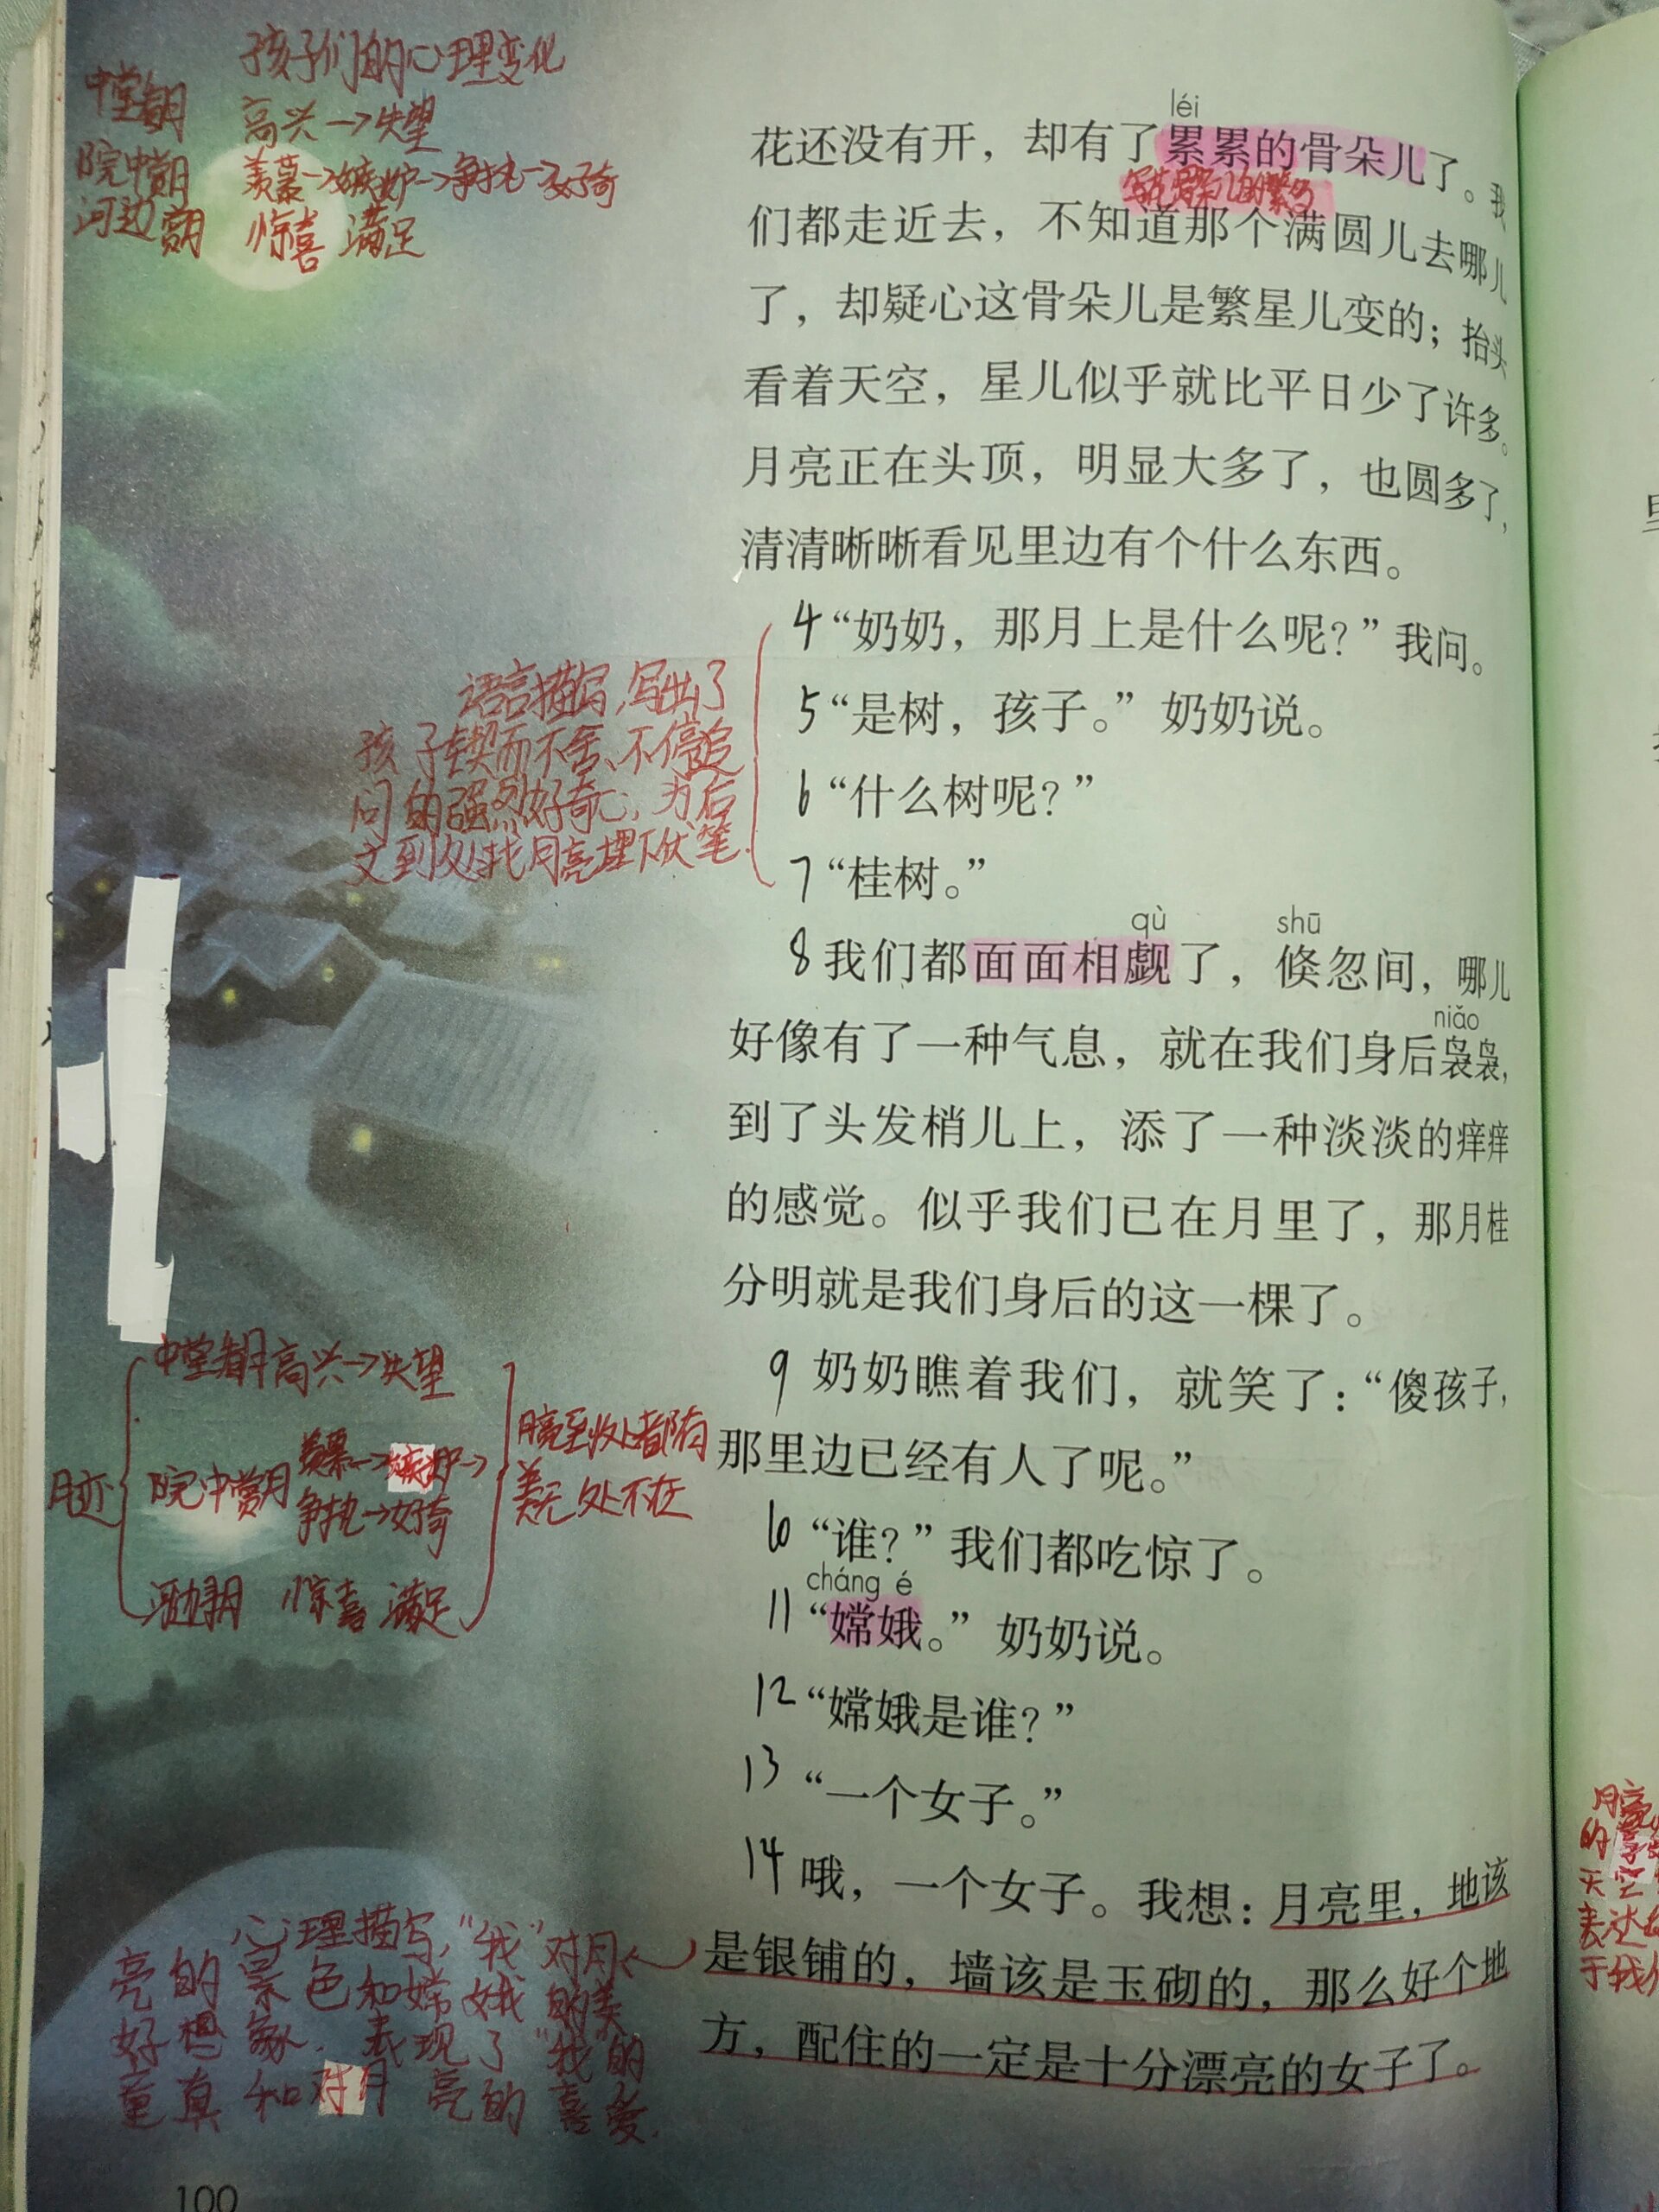 孩子们的心理变化
中堂看月 高兴→失望
院中赏月 羡慕→嫉妒→争执→好奇
河边寻月 惊喜 满足
léi
花还没有开，却有了累累的骨朵儿了。我
写花骨朵儿的繁多
们都走近去，不知道那个满圆儿去哪儿
了，却疑心这骨朵儿是繁星儿变的；抬头
看着天空，星儿似乎就比平日少了许多。
月亮正在头顶，明显大多了，也圆多了，
清清晰晰看见里边有个什么东西。
4“奶奶，那月上是什么呢？”我问。
5“是树，孩子。”奶奶说。
6“什么树呢？”
7“桂树。”
语言描写，写出了
孩子锲而不舍、不停追
问的强烈好奇心，为后
文到处找月亮埋下伏笔.
qù shū
8我们都面面相觑了，倏忽间，哪儿
niǎo
好像有了一种气息，就在我们身后袅袅，
到了头发梢儿上，添了一种淡淡的痒痒
的感觉。似乎我们已在月里了，那月桂
分明就是我们身后的这一棵了。
9奶奶瞧着我们，就笑了：“傻孩子，
那里边已经有人了呢。”
10“谁？”我们都吃惊了。
cháng é
11“嫦娥。”奶奶说。
12“嫦娥是谁？”
13“一个女子。”
14哦，一个女子。我想：月亮里，地该
是银铺的，墙该是玉砌的，那么好个地
方，配住的一定是十分漂亮的女子了。
月迹
中堂看月 高兴→失望
院中赏月 羡慕→嫉妒→
争执→好奇
河边寻月 惊喜 满足
月亮到处都有
美无处不在
心理描写，“我”对月
亮的景色和嫦娥的美
好想象．表现了“我”的
童真和对月亮的喜爱.
100
月亮
的
天空
表达
于我们